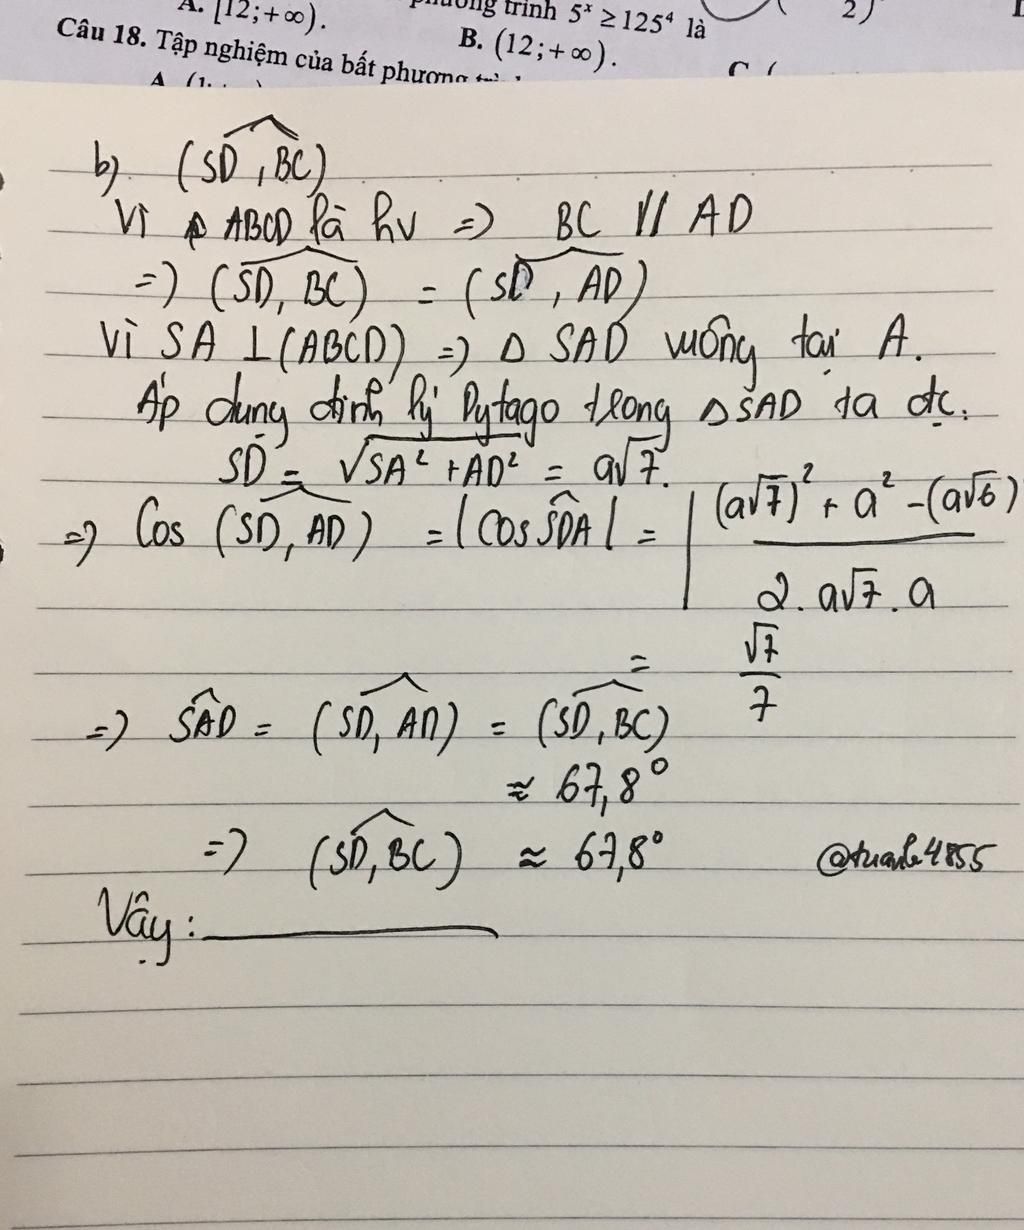 A. [12;+∞).
phương trình 5ˣ ≥ 125⁴ là
B. (12;+∞).
2)
Câu 18. Tập nghiệm của bất phương
b) (SD, BC)
Vì ABCD là hv => BC // AD
=> (SD, BC) = (SD, AD)
Vì SA ⊥ (ABCD) => Δ SAD vuông tại A.
Áp dụng định lý Pytago trong Δ SAD ta đc.
SD = √SA² + AD² = a√7.
=> Cos (SD, AD) = |Cos SDA| = | (a√7)² + a² - (a√6)
2. a√7. a
= √7
7
=> SAD = (SD, AD) = (SD, BC)
≈ 67,8°
=> (SD, BC) ≈ 67,8°
Vậy: